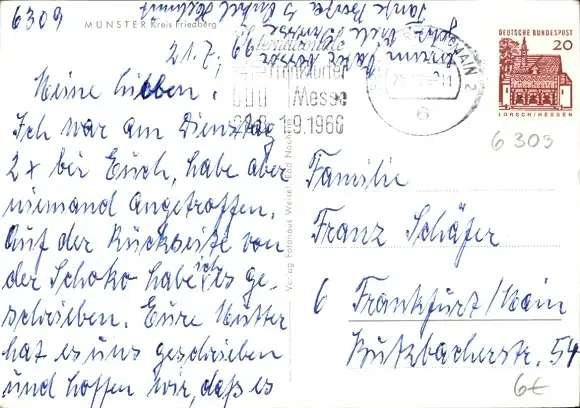 6309
MÜNSTER Kreis Friedberg
21.7.69
Meine lieben.
Ich war am Dienstag
2x bei Euch, habe aber
niemand angetroffen.
Auf der Rückseite von
der Schoko habe ich es ge-
schrieben. Eure Mutter
hat es uns geschrieben
und hoffen wir, daß es
Tante u Onkel
Internationale
Frankfurter
Messe
9.1966
MAIN 2
6
DEUTSCHE BUNDESPOST
20
LORSCH/HESSEN
6309
Verlag Fotohaus Weisel, Bad Nauheim
Familie
Franz Schäfer
6 Frankfurt/Main
Butzbacherstr. 54
6€